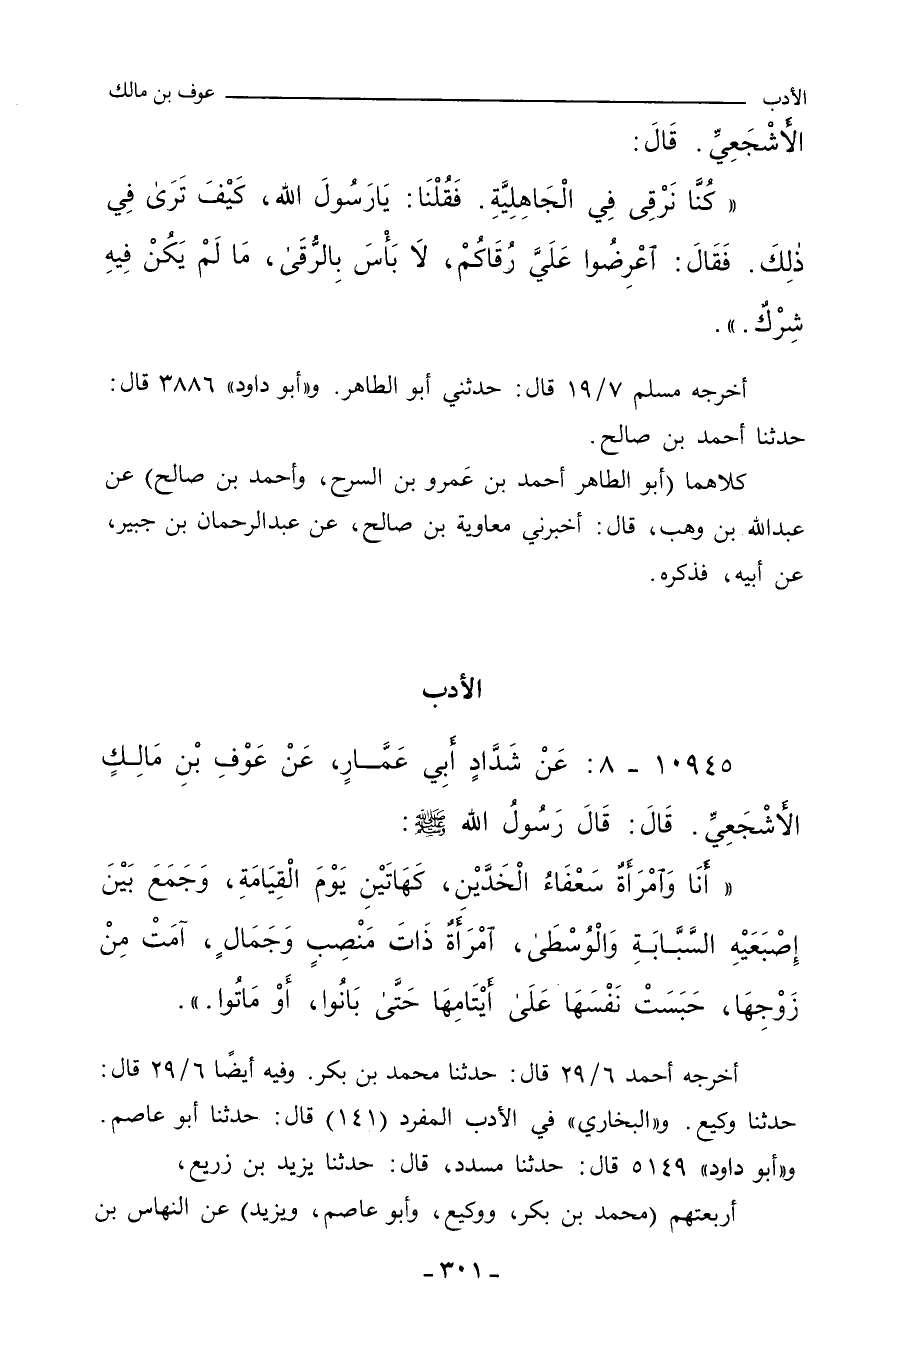 الأدب ـــــــــــــــــ عوف بن مالك
الأَشْجَعِيِّ . قَالَ :
« كُنَّا نَرْقِي فِي الْجَاهِلِيَّةِ . فَقُلْنَا : يَارَسُولَ الله ، كَيْفَ تَرَىٰ فِي
ذٰلِكَ . فَقَالَ : ٱعْرِضُوا عَلَيَّ رُقَاكُمْ ، لَا بَأْسَ بِالرُّقَىٰ ، مَا لَمْ يَكُنْ فِيهِ
شِرْكٌ . » .
أخرجه مسلم ١٩/٧ قال : حدثني أبو الطاهر . و«أبو داود» ٣٨٨٦ قال :
حدثنا أحمد بن صالح .
كلاهما (أبو الطاهر أحمد بن عَمرو بن السرح ، وأحمد بن صالح) عن
عبدالله بن وهب ، قال : أخبرني معاوية بن صالح ، عن عبدالرحمان بن جبير ،
عن أبيه ، فذكره .
الأدب
١٠٩٤٥ ـ ٨ : عَنْ شَدَّادٍ أَبِي عَمَّـارٍ ، عَنْ عَوْفِ بْنِ مَالِـكٍ
الأَشْجَعِيِّ . قَالَ : قَالَ رَسُولُ الله ﷺ :
« أَنَا وَٱمْرَأَةٌ سَعْفَاءُ الْخَدَّيْنِ ، كَهَاتَيْنِ يَوْمَ الْقِيَامَةِ ، وَجَمَعَ بَيْنَ
إِصْبَعَيْهِ السَّبَّـابَـةِ وَالْوُسْطَىٰ ، ٱمْرَأَةٌ ذَاتَ مَنْصِبٍ وَجَمَالٍ ، آمَتْ مِنْ
زَوْجِهَا ، حَبَسَتْ نَفْسَهَا عَلَىٰ أَيْتَامِهَا حَتَّىٰ بَانُوا ، أَوْ مَاتُوا . » .
أخرجه أحمد ٢٩/٦ قال : حدثنا محمد بن بكر . وفيه أيضًا ٢٩/٦ قال :
حدثنا وكيع . و«البخاري» في الأدب المفرد (١٤١) قال : حدثنا أبو عاصم .
و«أبو داود» ٥١٤٩ قال : حدثنا مسدد ، قال : حدثنا يزيد بن زريع ،
أربعتهم (محمد بن بكر ، ووكيع ، وأبو عاصم ، ويزيد) عن النهاس بن
ـ ٣٠١ ـ